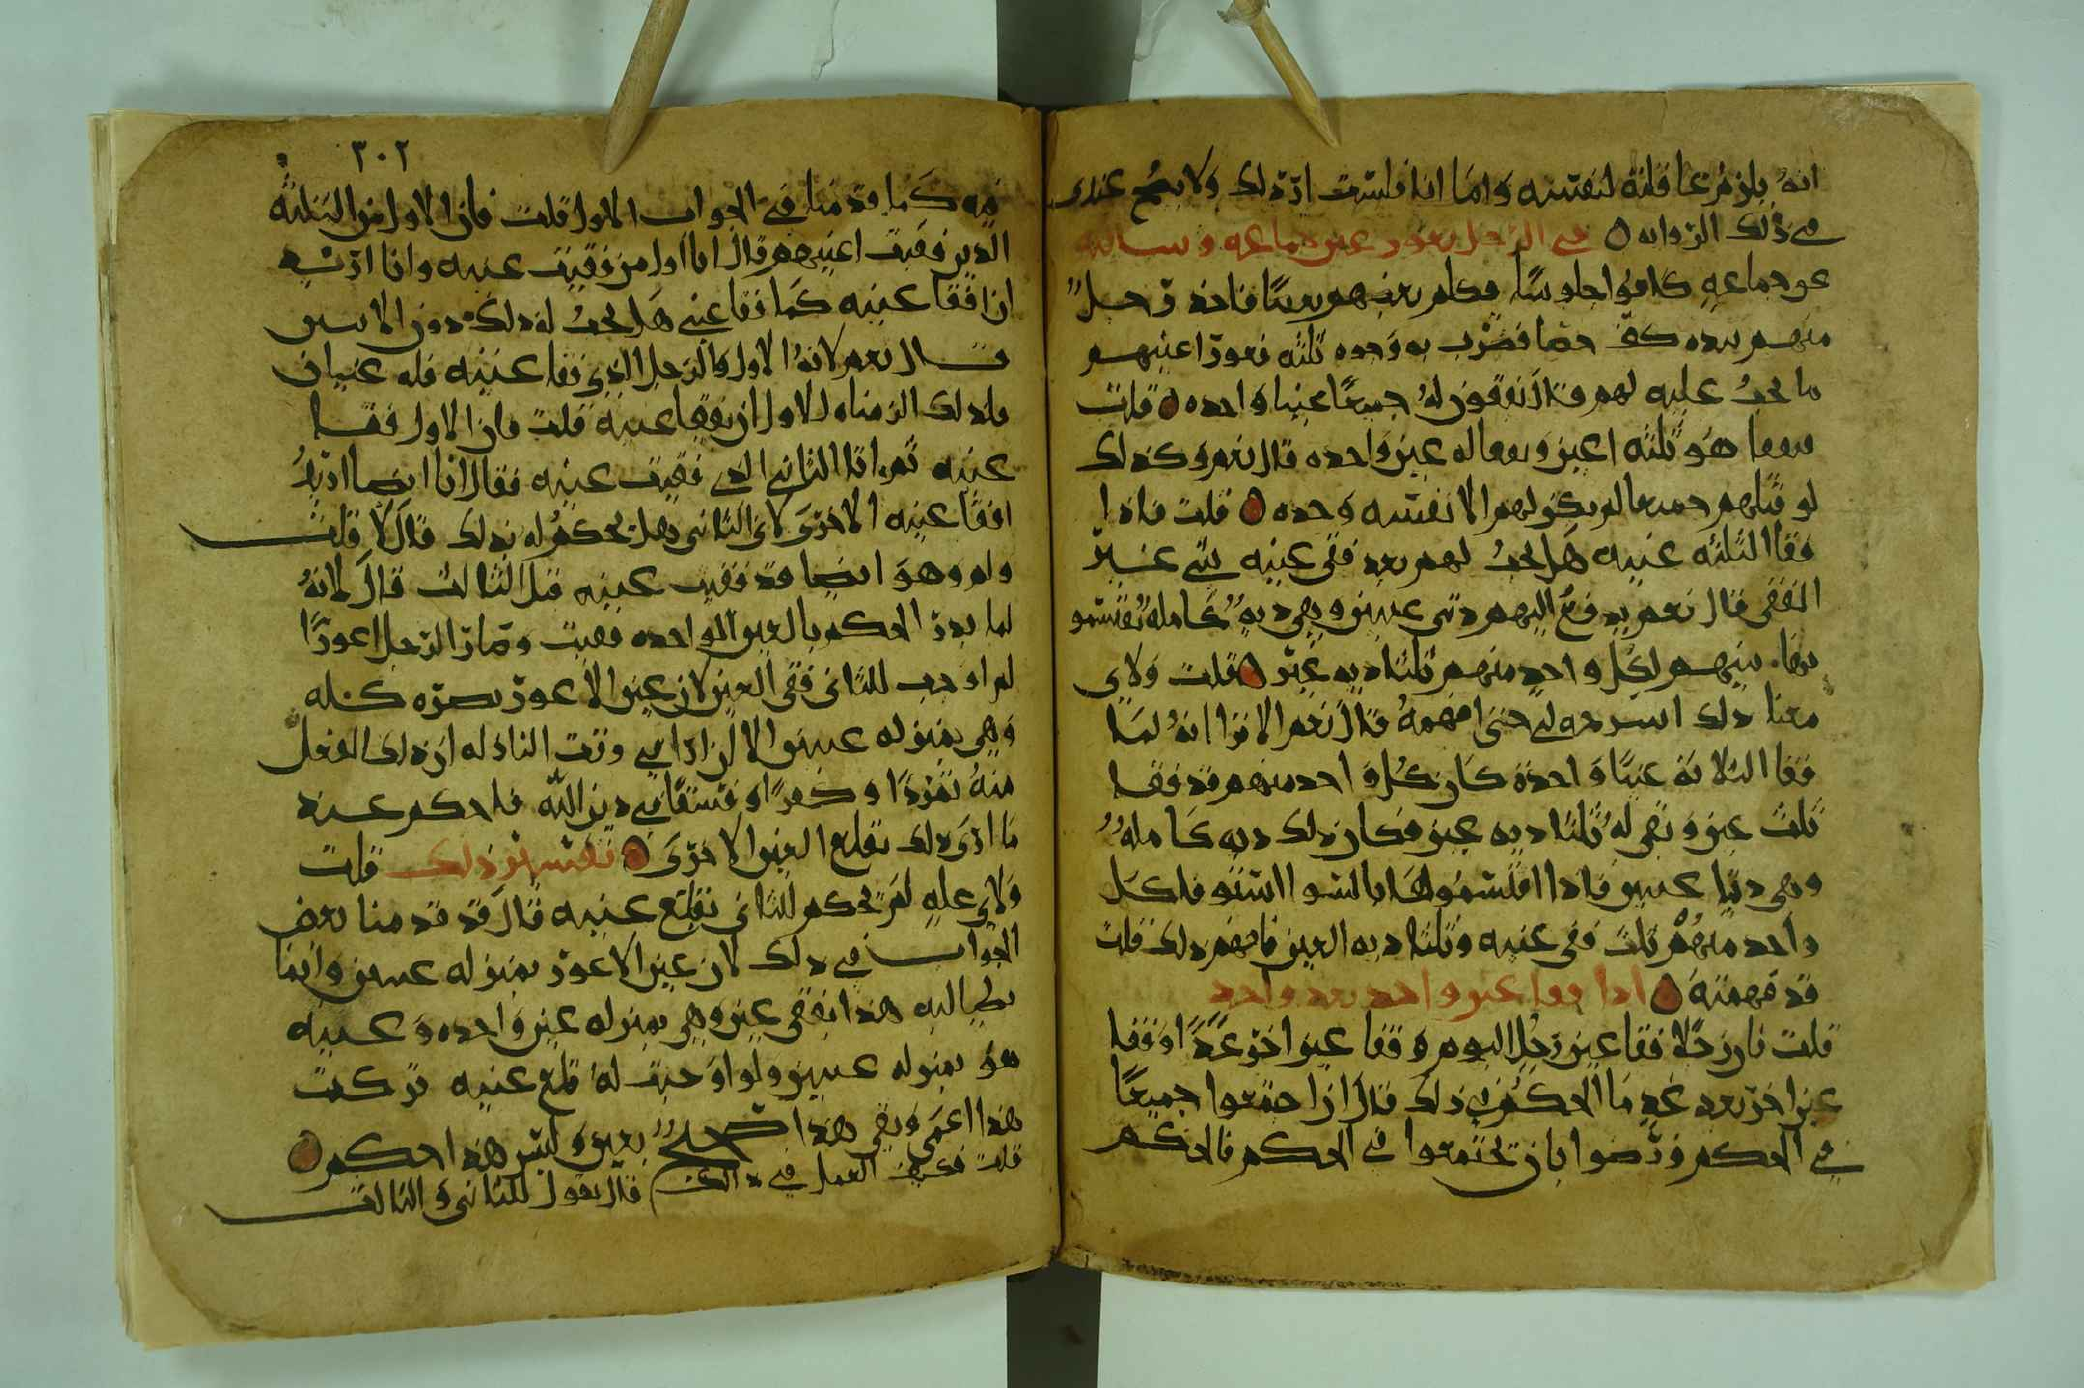 انه يلزم عاقلته لنفسه واما انا فلست ارى ذلك ولا يصح عندى
في ذلك الرواية في الرجل يعور عين جماعة وسالته
عن جماعة كانوا جلوسًا فكلم بعضهم بعضًا فاخذ رجل
منهم بيده كف حصا فضرب به وجوه ثلثه فعور اعينهم
ما يجب عليه لهم قال يفقون له جميعًا عينا واحده قلت
يفقا هو ثلثه اعين ويفقا له عين واحده قال نعم وكذلك
لو قتلهم جميعا لم يكن لهم الا نفسه وحده قلت فاذا
فقا الثلثه عينيه هل يجب لهم بعد فقى عينه شي غير
الفقى قال نعم يدفع اليهم ديتى عينين وهي ديه كامله تقسم
بينهم لكل واحد منهم ثلثا ديه عين قلت ولاي
معنا ذلك اشرحه لي حتى افهمه قال نعم الا ترا انه لما
فقا الثلاثة عينًا واحدة كان كل واحد منهم قد فقا
ثلث عين وبقي له ثلثا ديه عين فكان ذلك ديه كامله
وهي ديتا عينين فاذا اقتسموها بالسوا استوفا كل
واحد منهم ثلث فقى عينه وثلثا ديه العين فافهم ذلك قلت
قد فهمته اذا فقا عين واحد بعد واحد
قلت فان رجلا فقا عين رجل اليوم وفقا عين اخر غدًا وفقا
عين اخر بعد غد ما الحكم في ذلك قال اذا اجتمعوا جميعًا
في الحكم ورضوا بان يجتمعوا في الحكم فالحكم
٣٠٢
فيه كما قدمنا في الجواب الاول قلت فان الاول من الثلثة
الذين فقيت اعينهم قال انا اول من فقيت عينه وانا اريد
ان افقا عينه كما فقا عيني هل يجب له ذلك دون الاثنين
قال نعم لانه الاول والرجل الذي فقا عينيه فله عينان
فلذلك الزمناه للاول ان يفقا عينه قلت فان الاول فقا
عينه ثم اتا الثاني الذي فقيت عينه فقال انا ايضا اريد
افقا عينه الاخرى لاى الثاني وهل يحكم له بذلك قال لا قلت
ولم وهو ايضا قد فقيت عينه قبل الثالث قال لانه
لما بدر الحكم بالعين الواحده فقيت وصار الرجل اعورًا
لم اوجب للثاني فقى العين لان عين الاعور بصره كله
وهي بمنزله عينين الا ان ارا في وقت النازله ان ذلك الفعل
منه تمردًا وكفرًا وفسقًا في دين الله فاحكم عند
ما ارى ذلك بقلع العين الاخرى تفسير ذلك قلت
ولاي عله لم تحكم للثاني بقلع عينيه قال قد قدمنا بعض
الجواب في ذلك لان عين الاعور بمنزله عينين وانما
يطالبه هذا بفقى عين وهي بمنزله عين واحده وعينيه
هو بمنزله عينين ولو اوجبت له قلع عينيه تركت
هذا اعمى وبقي هذا صحيح بعين وليس هذا حكم
قلت فكيف العمل في ذالك قال يقول للثاني والثالث